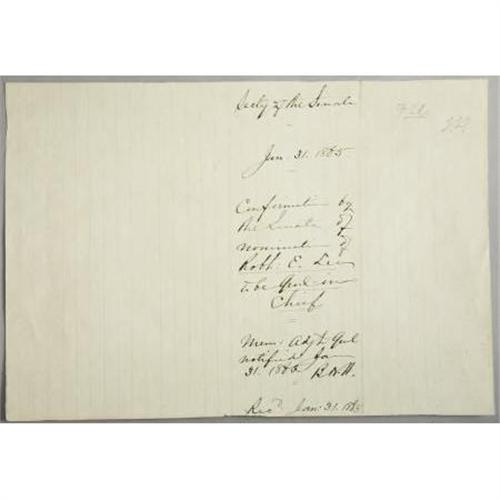 Secty of the Senate
Jan. 31. 1865
Confirmation by
the Senate of
nomination of
Robt. E. Lee
to be Genl in
Chief
Mem: Adjt Genl
notified Jan
31. 1865
Recd Jan: 31. 1865
File